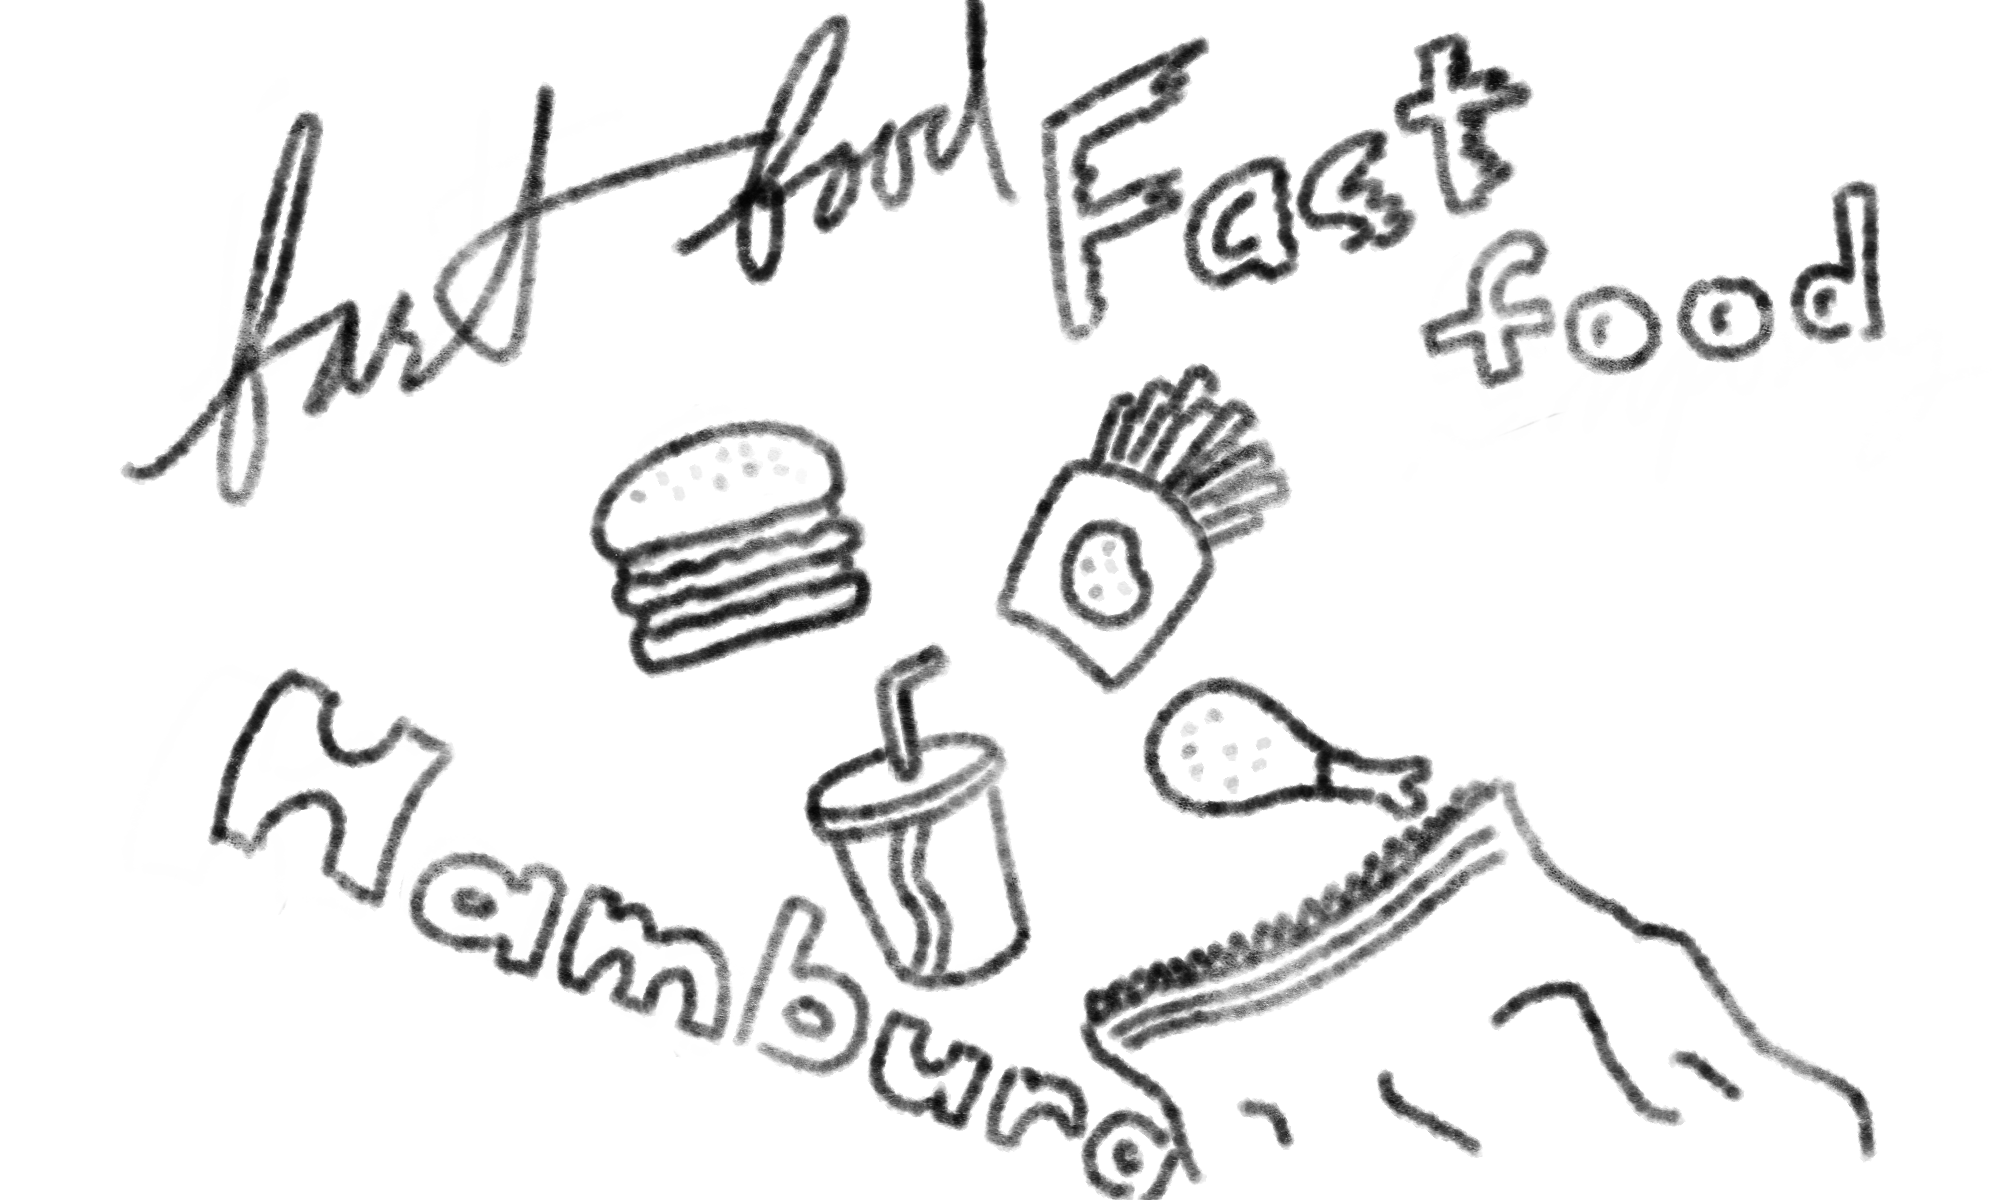 fast food
Fast
food
Hamburg